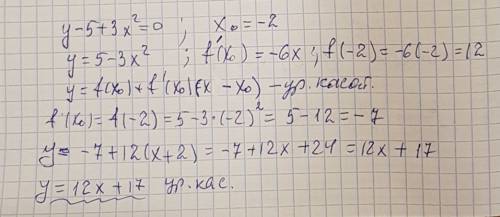 y-5+3x²=0 ; x₀=-2
y=5-3x² ; f'(x₀)=-6x ; f(-2)=-6(-2)=12
y=f(x₀)+f'(x₀)(x-x₀) - ур. касат.
f'(x₀)=f(-2)=5-3·(-2)²=5-12=-7
y=-7+12(x+2)=-7+12x+24=12x+17
y=12x+17 ур. кас.